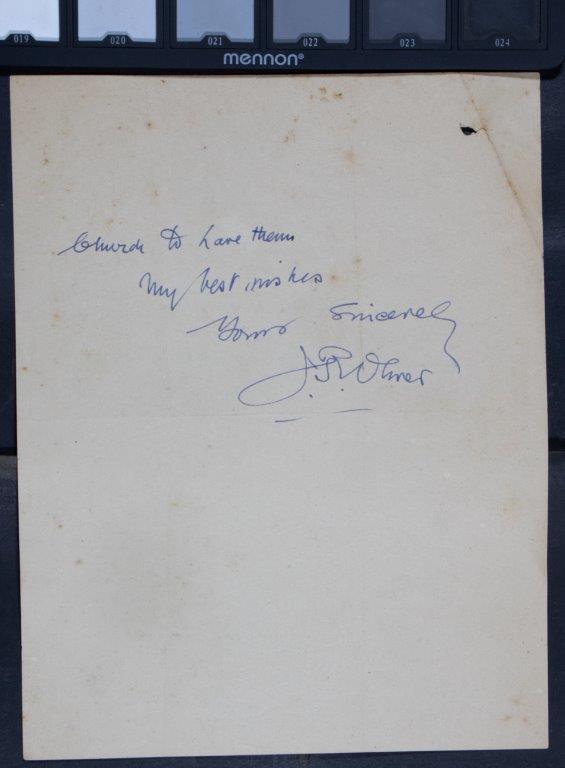 019 020 021 022 023 024
mennon®
Church to have them
My best wishes
Yours Sincerely
J. R. Oliver